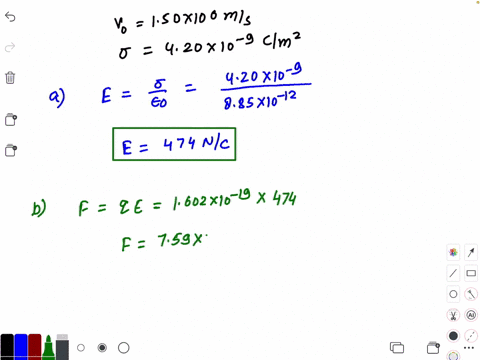 v₀ = 1.50×100 m/s
σ = 4.20×10⁻⁹ C/m²
a) E = σ/ε0 = 4.20×10⁻⁹/8.85×10⁻¹²
E = 474 N/C
b) F = qE = 1.602×10⁻¹⁹ × 474
F = 7.59×